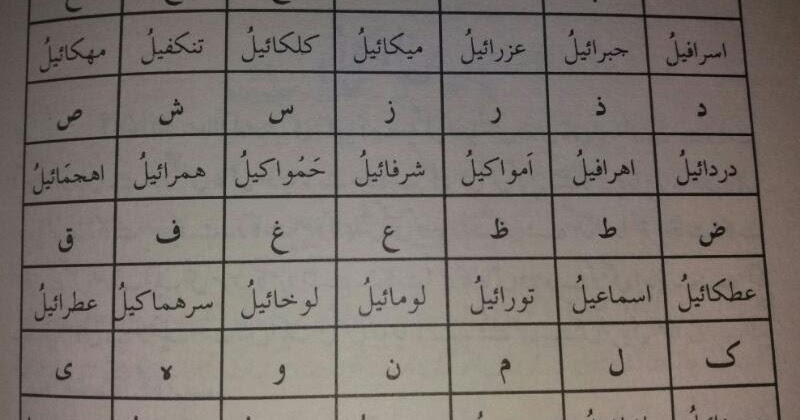 اسرافيلُ جبرائيلُ عزرائيلُ ميكائيلُ كلكائيلُ تنكفيلُ مهكائيلُ
د ذ ر ز س ش ص
دردائيلُ اهرافيلُ اَمواكيلُ شرفائيلُ حَمُواكيلُ همرائيلُ اهجمَائيلُ
ض ط ظ ع غ ف ق
عطكائيلُ اسماعيلُ تورائيلُ لومائيلُ لوخائيلُ سرهماكيلُ عطرائيلُ
ک ل م ن و ه ى